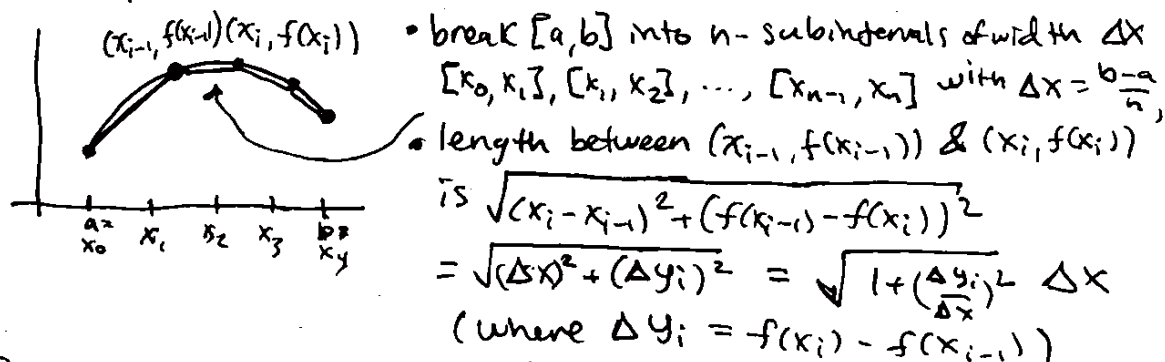 (x_{i-1}, f(x_{i-1})) (x_i, f(x_i))
a= x_0 x_1 x_2 x_3 b= x_4
• break [a,b] into n-subintervals of width Δx
[x_0, x_1], [x_1, x_2], ..., [x_{n-1}, x_n] with Δx = \frac{b-a}{n},
• length between (x_{i-1}, f(x_{i-1})) & (x_i, f(x_i))
is \sqrt{(x_i - x_{i-1})^2 + (f(x_{i-1}) - f(x_i))^2}
= \sqrt{(Δx)^2 + (Δy_i)^2} = \sqrt{1 + (\frac{Δy_i}{Δx})^2} Δx
(where Δy_i = f(x_i) - f(x_{i-1}))